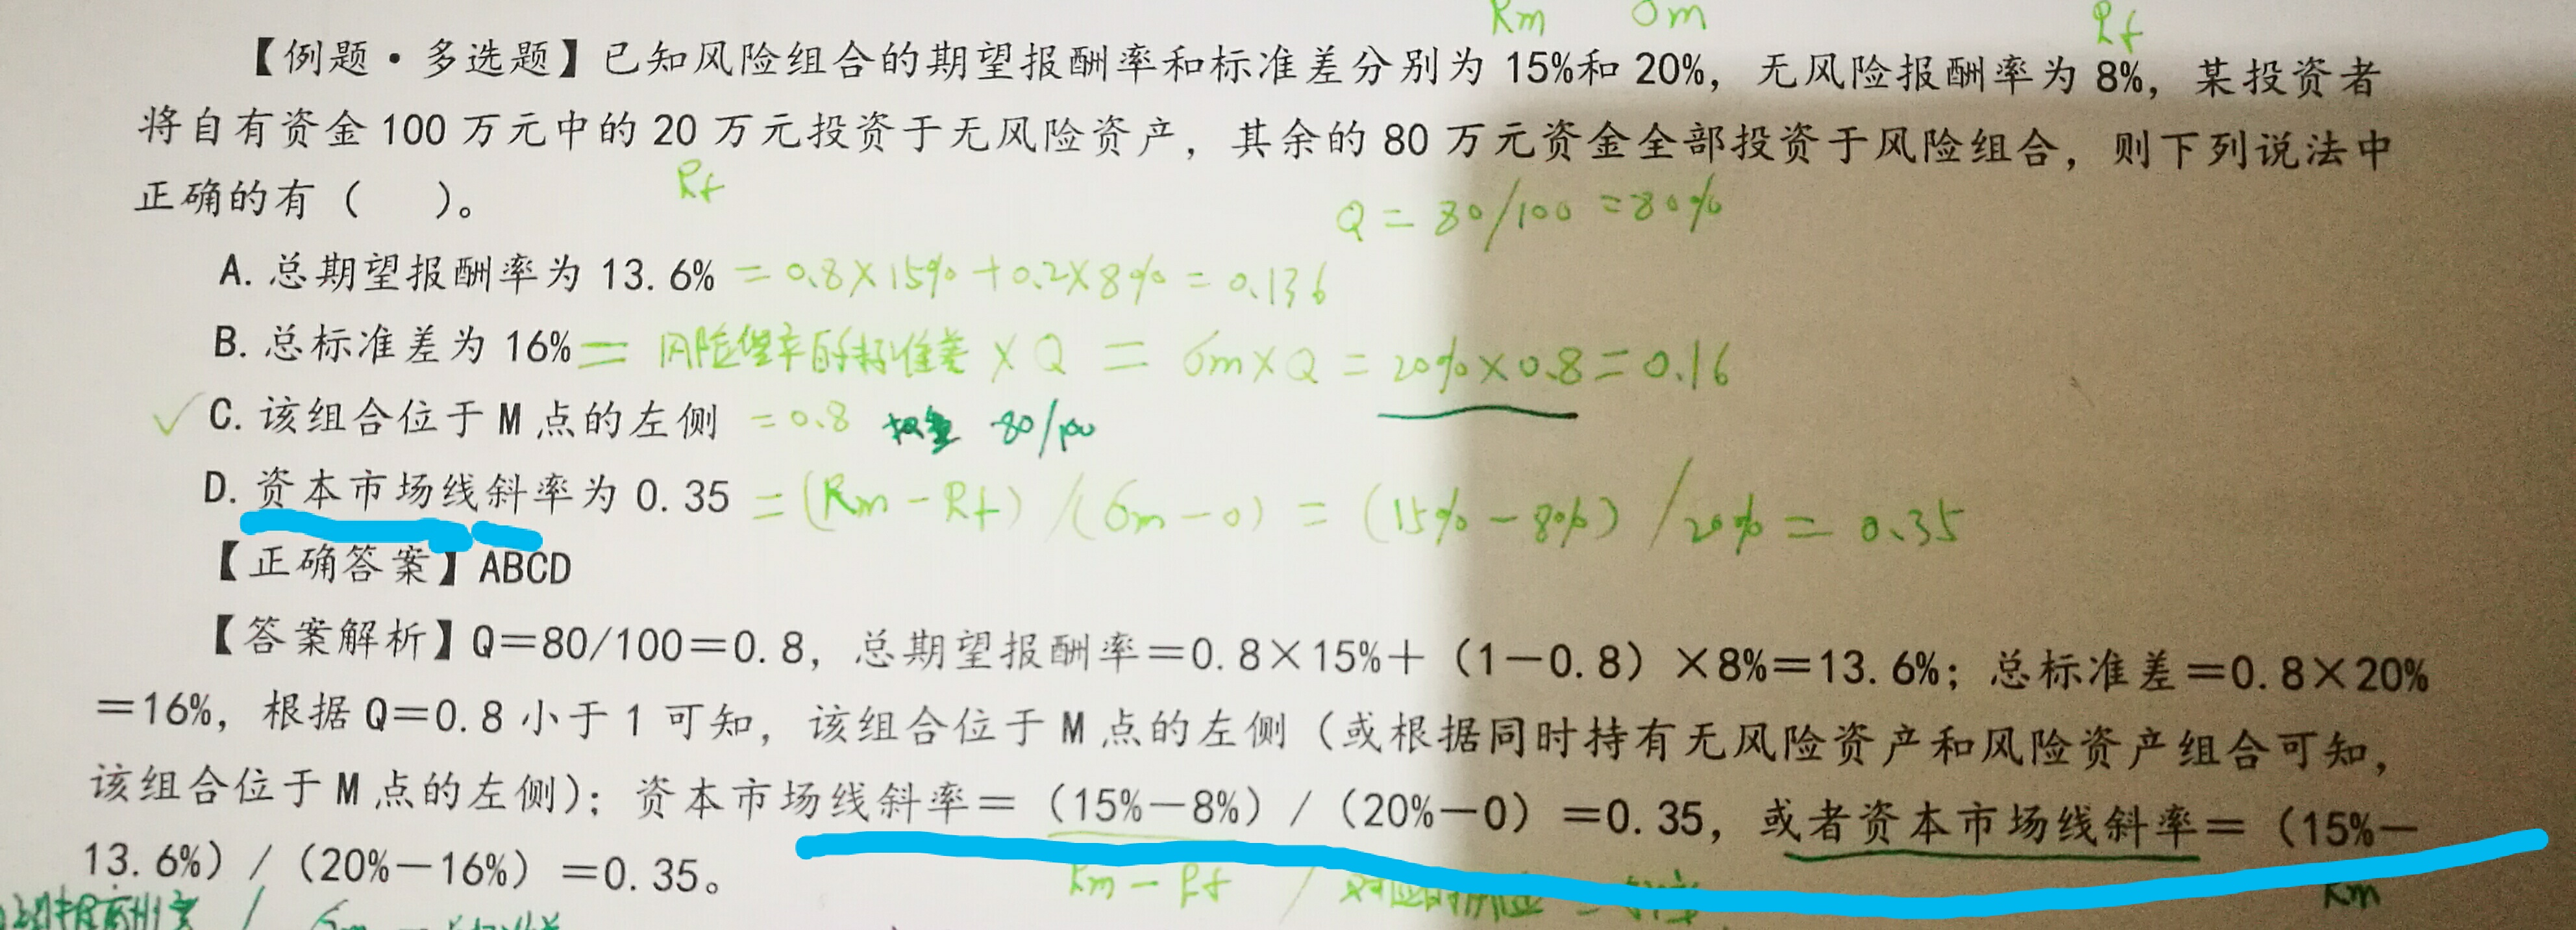 Rm σm Rf
【例题·多选题】已知风险组合的期望报酬率和标准差分别为 15%和 20%，无风险报酬率为 8%，某投资者
将自有资金 100 万元中的 20 万元投资于无风险资产，其余的 80 万元资金全部投资于风险组合，则下列说法中
正确的有（ ）。
Rf
Q = 80/100 = 80%
A. 总期望报酬率为 13.6% = 0.8×15% + 0.2×8% = 0.136
B. 总标准差为 16% = 风险组合的标准差 × Q = σm×Q = 20%×0.8 = 0.16
✓ C. 该组合位于 M 点的左侧 = 0.8 权重 80/100
D. 资本市场线斜率为 0.35 = (Rm - Rf) / (σm - 0) = (15% - 8%) / 20% = 0.35
【正确答案】ABCD
【答案解析】Q＝80/100＝0.8，总期望报酬率＝0.8×15%＋（1－0.8）×8%＝13.6%；总标准差＝0.8×20%
＝16%，根据 Q＝0.8 小于 1 可知，该组合位于 M 点的左侧（或根据同时持有无风险资产和风险资产组合可知，
该组合位于 M 点的左侧）；资本市场线斜率＝（15%－8%）/（20%－0）＝0.35，或者资本市场线斜率＝（15%－
13.6%）/（20%－16%）＝0.35。
Rm - Rf /
Rm